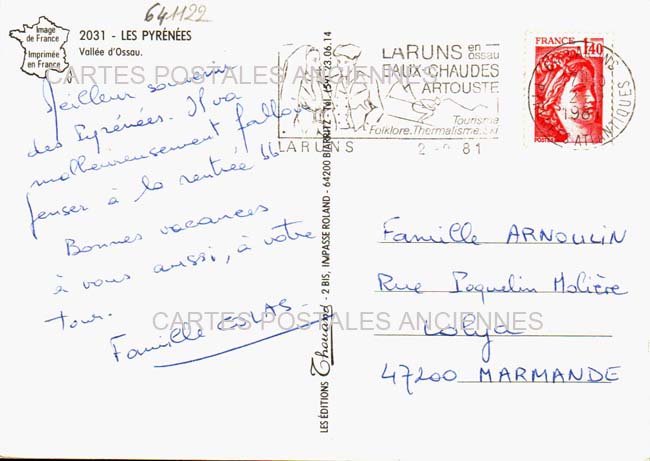 641122
Image
de France
Imprimée
en France
2031 - LES PYRÉNÉES
Vallée d'Ossau.
CARTES POSTALES ANCIENNES
Meilleur souvenir
des Pyrénées. Il va
malheureusement falloir
penser à la rentrée
Bonnes vacances
à vous aussi, à votre
tour.
Famille COLAS
LES ÉDITIONS Thouand - 2 BIS, IMPASSE ROLAND - 64200 BIARRITZ - Tél. (59) 23.06.14
LARUNS en
ossau
EAUX-CHAUDES
ARTOUSTE
Tourisme
Folklore.Thermalisme.Ski
LARUNS
81
FRANCE
1,40
POSTES
Famille ARNOULIN
Rue Poquelin Molière
CARTES POSTALES ANCIENNES
47200 MARMANDE